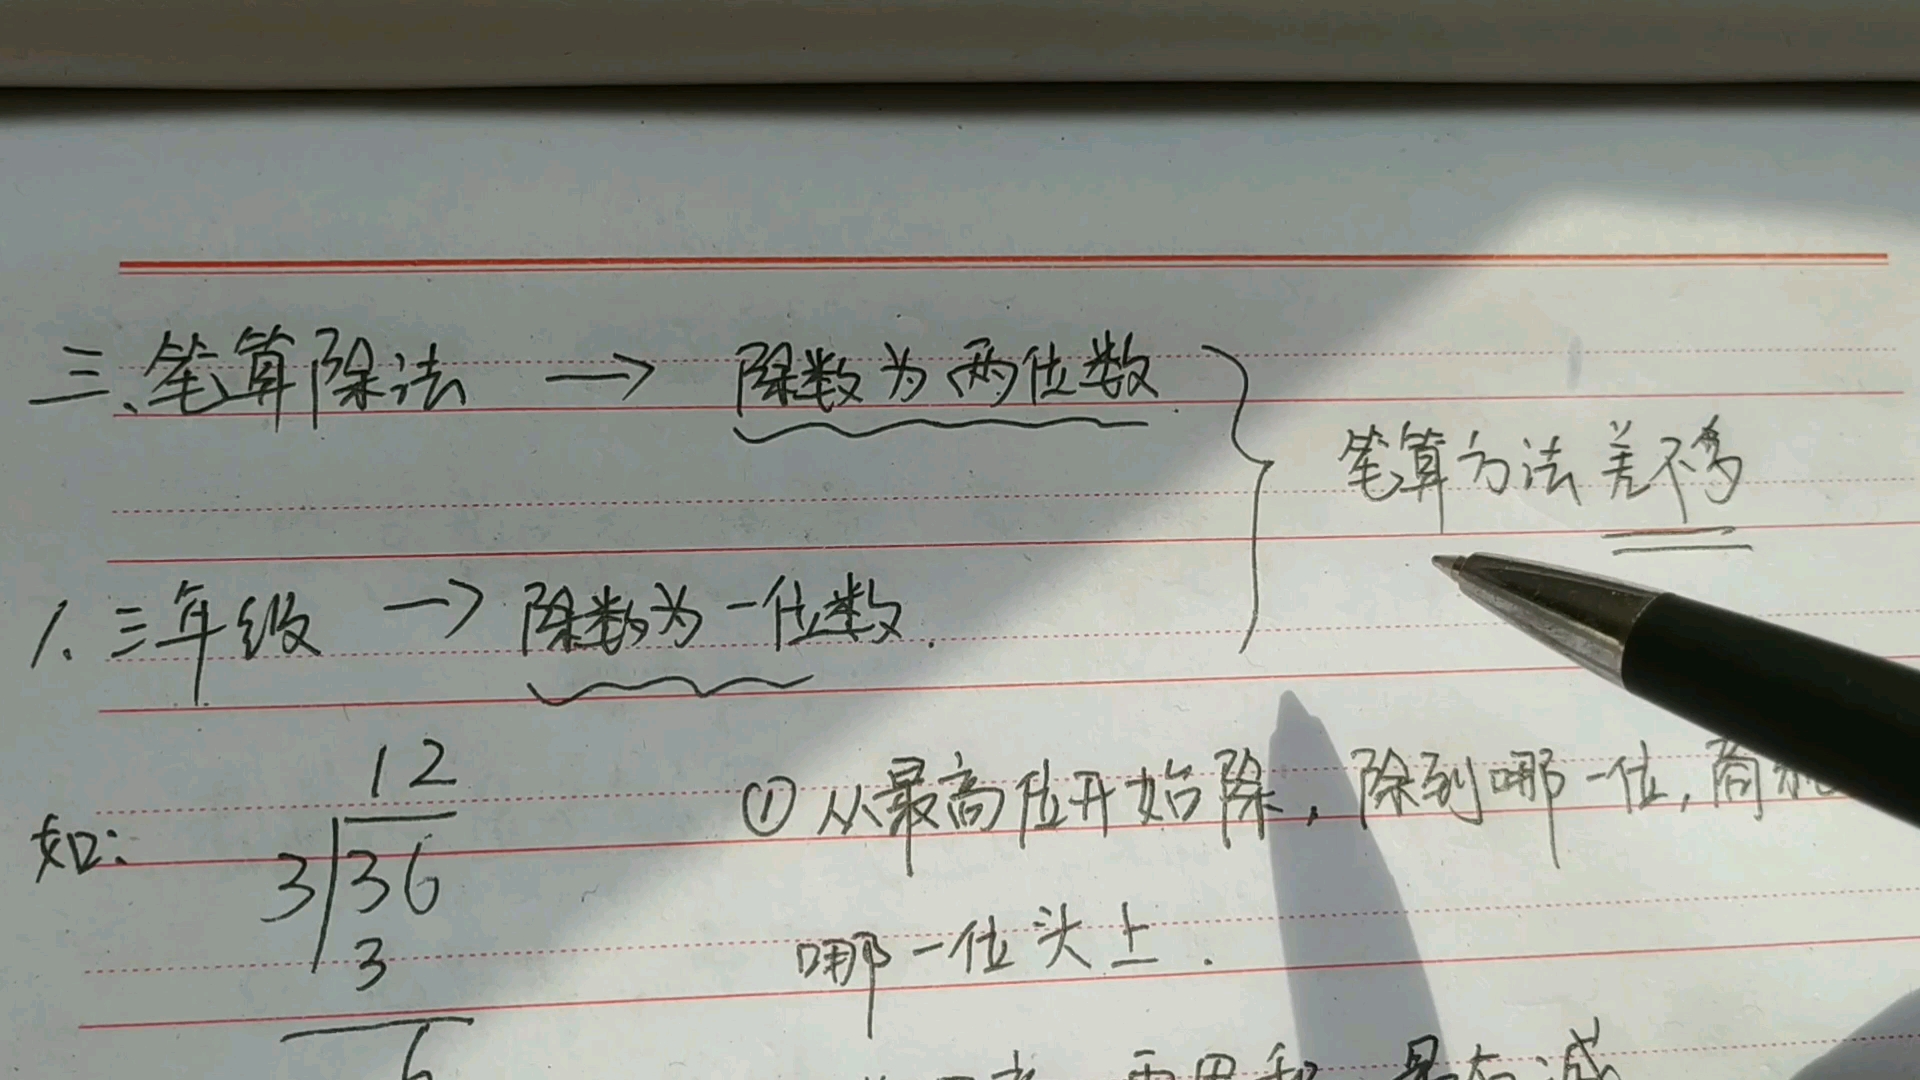 三、笔算除法 → 除数为两位数.
笔算方法差不多
1. 三年级 → 除数为一位数.
如:
12
3 36
3
6
① 从最高位开始除, 除到哪一位, 商
哪一位头上.